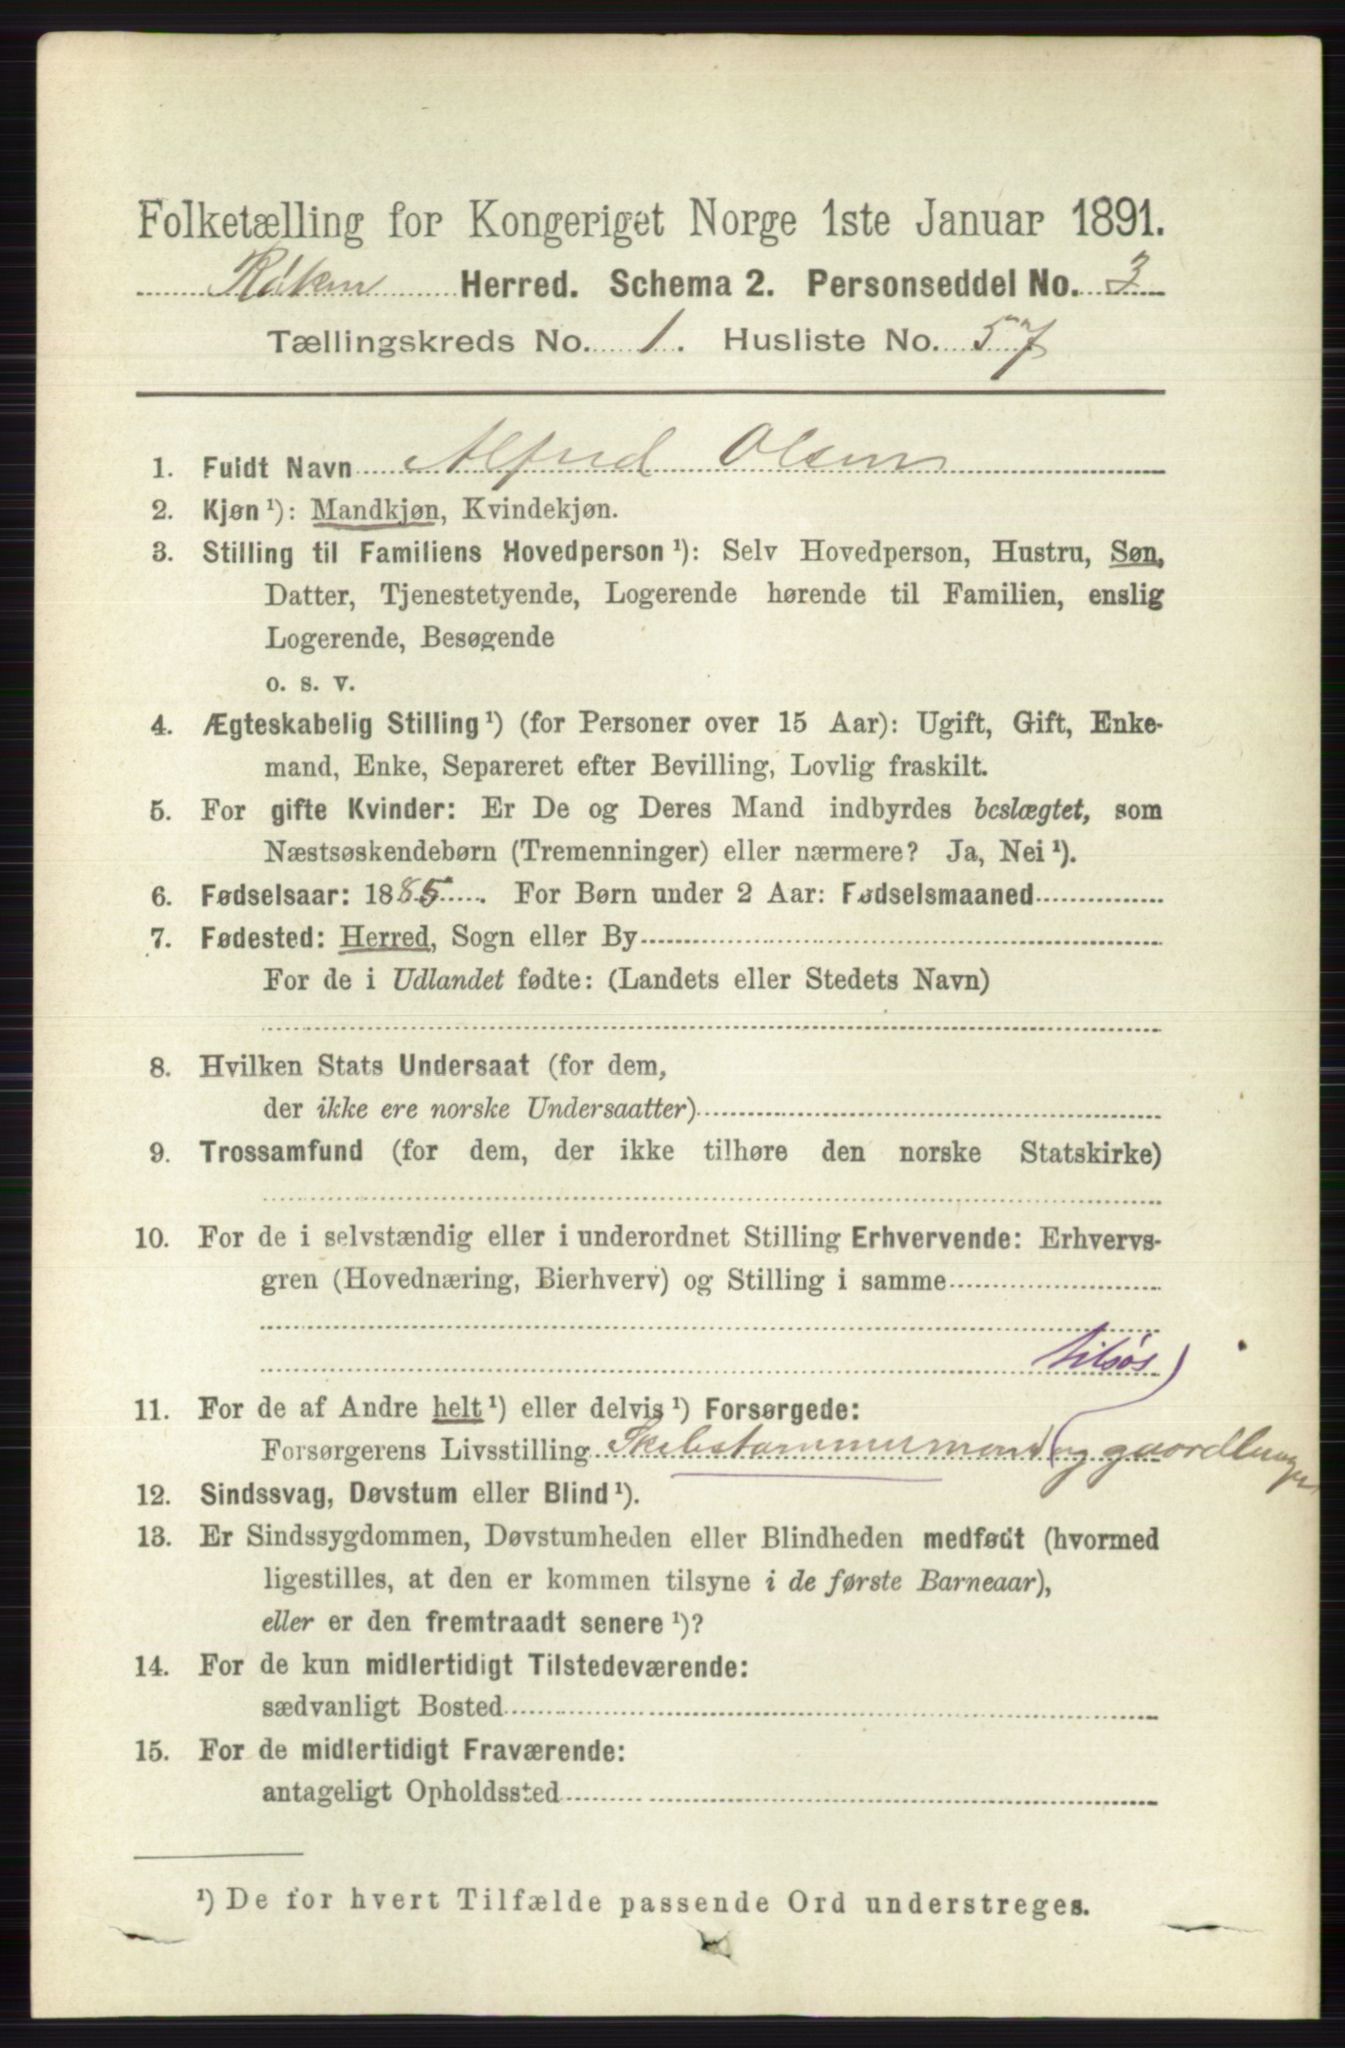 Folketælling for Kongeriget Norge 1ste Januar 1891.
Røken Herred. Schema 2. Personseddel No. 3
Tællingskreds No. 1. Husliste No. 57
1. Fuldt Navn Alfred Olsen
2. Kjøn ¹): Mandkjøn, Kvindekjøn.
3. Stilling til Familiens Hovedperson ¹): Selv Hovedperson, Hustru, Søn,
Datter, Tjenestetyende, Logerende hørende til Familien, enslig
Logerende, Besøgende
o. s. v.
4. Ægteskabelig Stilling ¹) (for Personer over 15 Aar): Ugift, Gift, Enke-
mand, Enke, Separeret efter Bevilling, Lovlig fraskilt.
5. For gifte Kvinder: Er De og Deres Mand indbyrdes beslægtet, som
Næstsøskendebørn (Tremenninger) eller nærmere? Ja, Nei ¹).
6. Fødselsaar: 1885. For Børn under 2 Aar: Fødselsmaaned
7. Fødested: Herred, Sogn eller By
For de i Udlandet fødte: (Landets eller Stedets Navn)
8. Hvilken Stats Undersaat (for dem,
der ikke ere norske Undersaatter)
9. Trossamfund (for dem, der ikke tilhøre den norske Statskirke)
10. For de i selvstændig eller i underordnet Stilling Erhvervende: Erhvervs-
gren (Hovednæring, Bierhverv) og Stilling i samme
tilsøs)
11. For de af Andre helt ¹) eller delvis ¹) Forsørgede:
Forsørgerens Livsstilling Skibstømmermand (og gaardbruger
12. Sindssvag, Døvstum eller Blind ¹).
13. Er Sindssygdommen, Døvstumheden eller Blindheden medfødt (hvormed
ligestilles, at den er kommen tilsyne i de første Barneaar),
eller er den fremtraadt senere ¹)?
14. For de kun midlertidigt Tilstedeværende:
sædvanligt Bosted
15. For de midlertidigt Fraværende:
antageligt Opholdssted
¹) De for hvert Tilfælde passende Ord understreges.